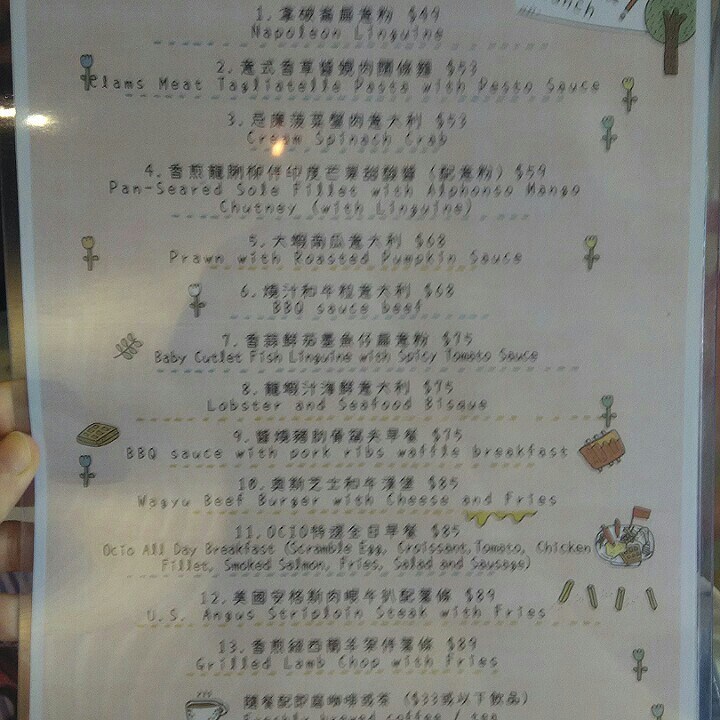 1. 拿破崙扁意粉 $49
Napoleon Linguine
2. 意式香草醬燒肉闊條麵 $53
Clams Meat Tagliatelle Pasta with Pesto Sauce
3. 忌廉菠菜蟹肉意大利 $53
Cream Spinach Crab
4. 香煎龍脷柳伴印度芒果甜酸醬 (配意粉) $59
Pan-Seared Sole Fillet with Alphonso Mango
Chutney (with Linguine)
5. 大蝦南瓜意大利 $68
Prawn with Roasted Pumpkin Sauce
6. 燒汁和牛粒意大利 $68
BBQ sauce beef
7. 香蒜鮮茄墨魚仔扁意粉 $75
Baby Cutlet Fish Linguine with Spicy Tomato Sauce
8. 龍蝦汁海鮮意大利 $75
Lobster and Seafood Bisque
9. 醬燒豬肋骨窩夫早餐 $75
BBQ sauce with pork ribs waffle breakfast
10. 奧斯芝士和牛漢堡 $85
Wagyu Beef Burger with Cheese and Fries
11. OCIO特選全日早餐 $85
Ocio All Day Breakfast (Scramble Egg, Croissant, Tomato, Chicken
Fillet, Smoked Salmon, Fries, Salad and Sausage)
12. 美國安格斯肉眼牛扒配薯條 $89
U.S. Angus Striploin Steak with Fries
13. 香煎紐西蘭羊架伴薯條 $89
Grilled Lamb Chop with Fries
隨餐配即磨咖啡或茶 ($33或以下飲品)
Freshly brewed coffee / tea